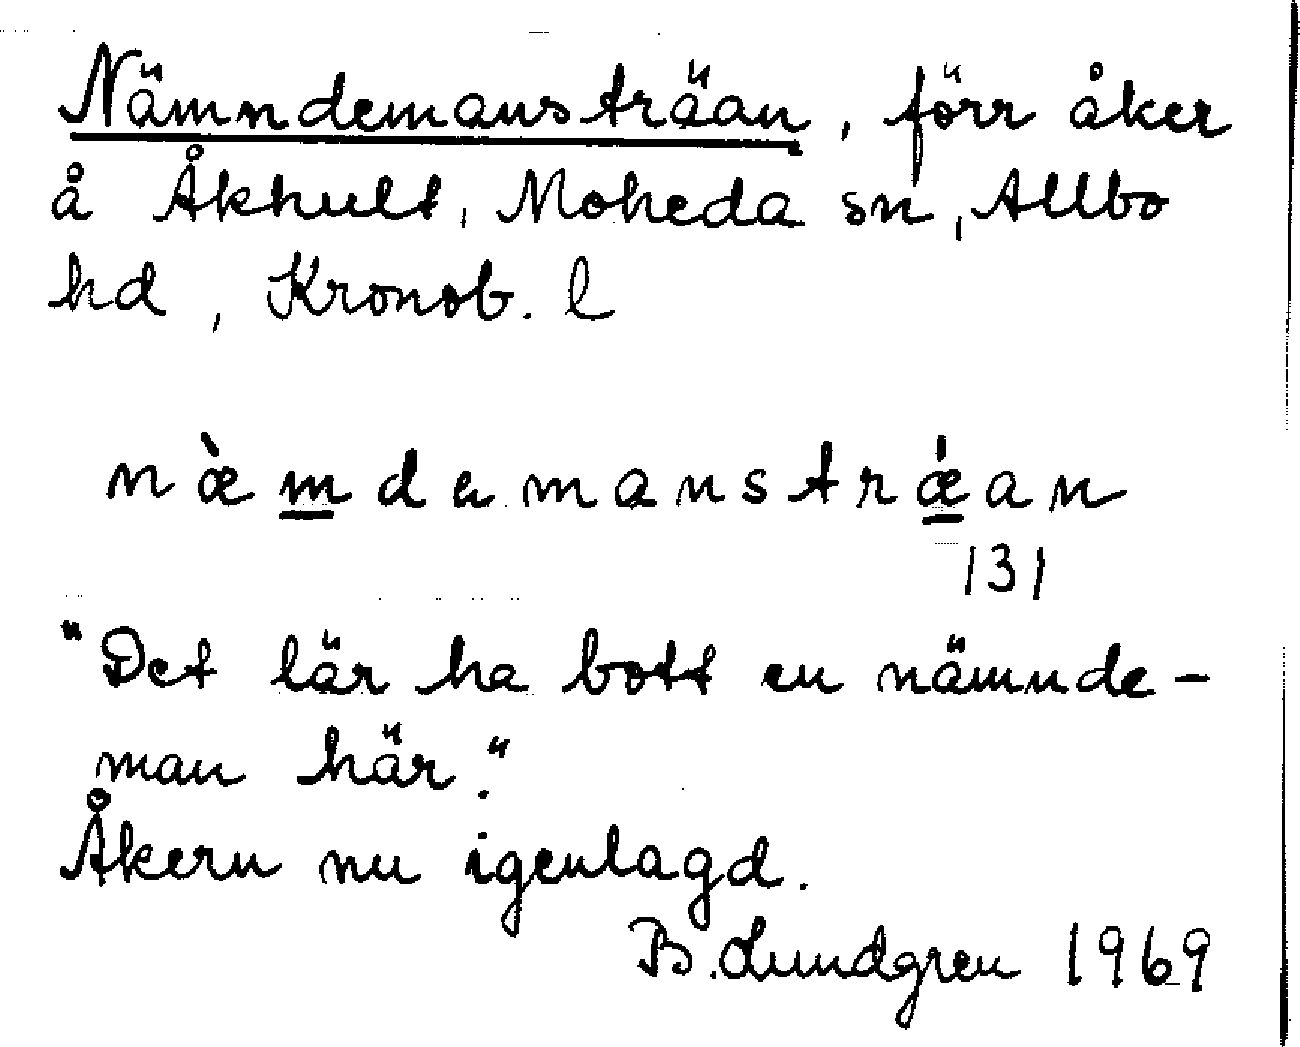 Nämndemansträan, förr åker
å Åkhult, Moheda sn, Allbo
hd, Kronob. l
næ̀m̲demanstrǽ̲an
131
"Det lär ha bott en nämnde-
man här."
Åkern nu igenlagd.
B. Lundgren 1969